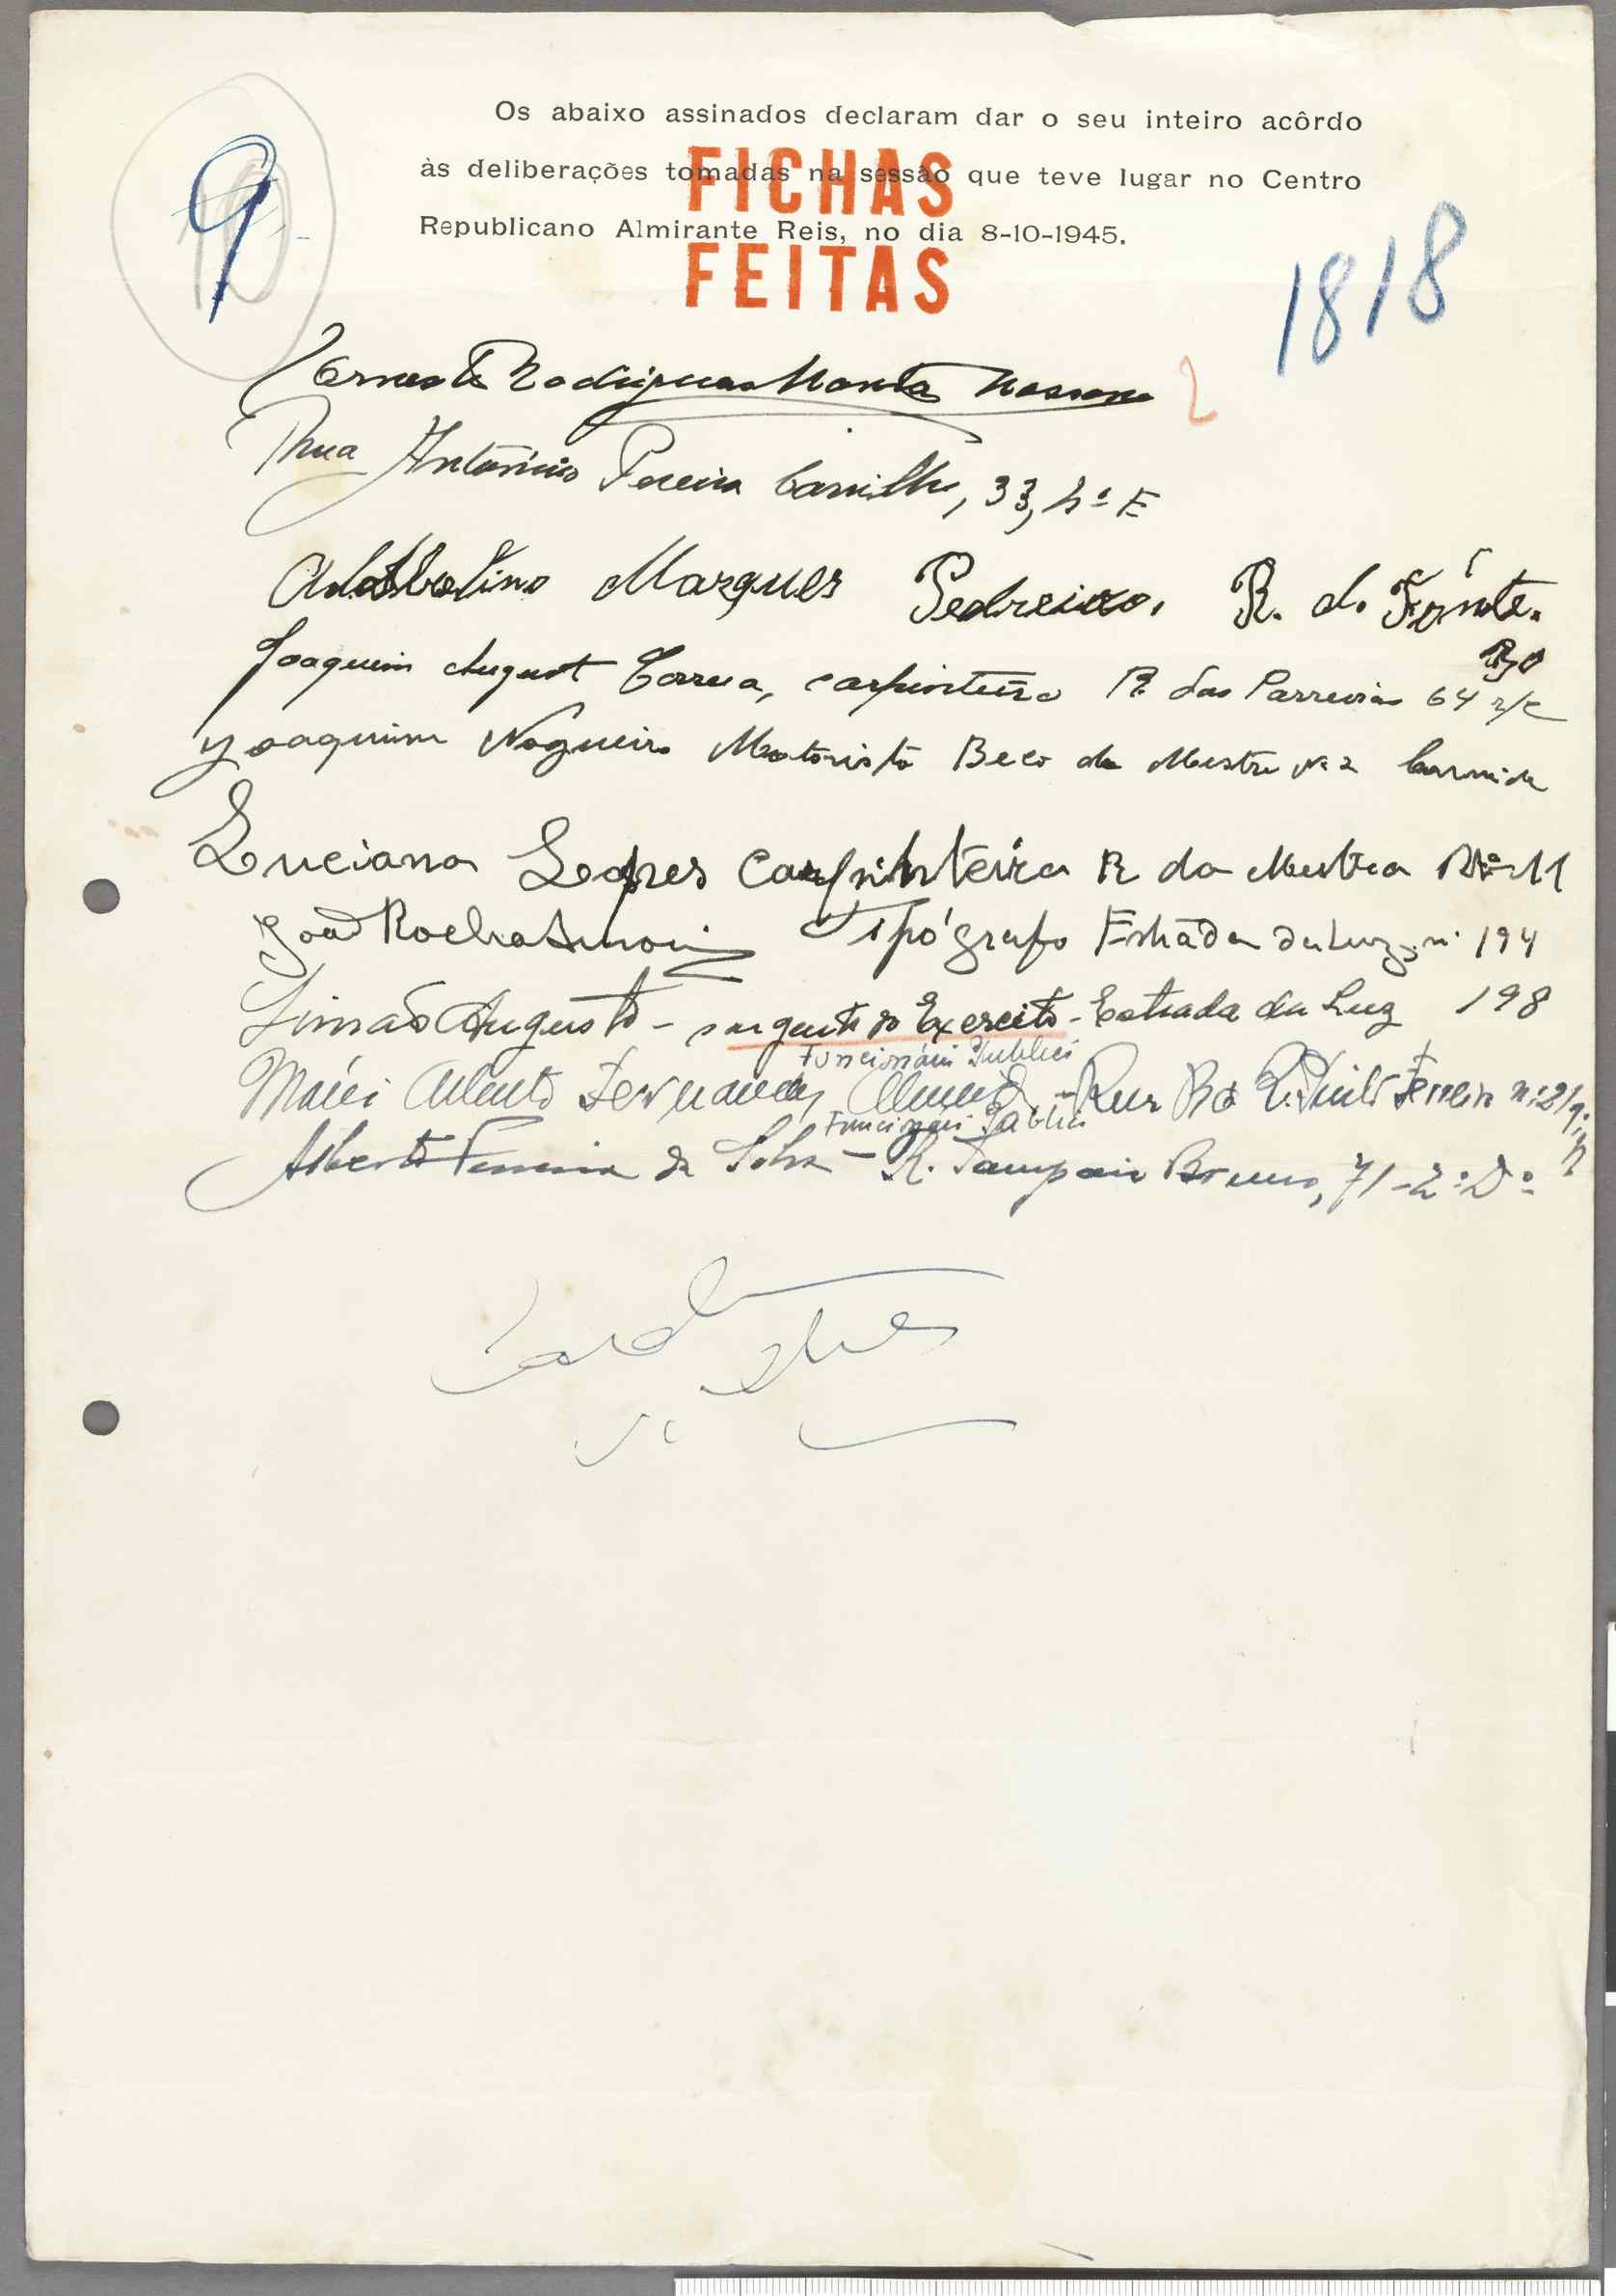 Os abaixo assinados declaram dar o seu inteiro acôrdo
às deliberações tomadas na sessão que teve lugar no Centro
Republicano Almirante Reis, no dia 8-10-1945.
FICHAS
FEITAS
9
10
1818
2
Ernesto Rodrigues
Rua António Pereira Carrilho, 33, 4º E
Marques Pedreiro. R. da Fonte.
30
Joaquim August Correia, carpinteiro R. das Parreiras 64 r/c
Joaquim Nogueira Motorista Beco da Mestra Nº 2 Carnide
Luciano Lopes Carpinteiro R da Mestra Nº 11
João Rocha Tipógrafo Estrada da Luz, nº 194
Simão Augusto - sargento do Exercito - Estrada da Luz 198
Funcionário Publico
Mário Alberto Fernandes - Rua Ferreira nº 21
Funcionário Publico
Alberto Ferreira da Silva - R. Sampaio Bruno, 71-2º Dº